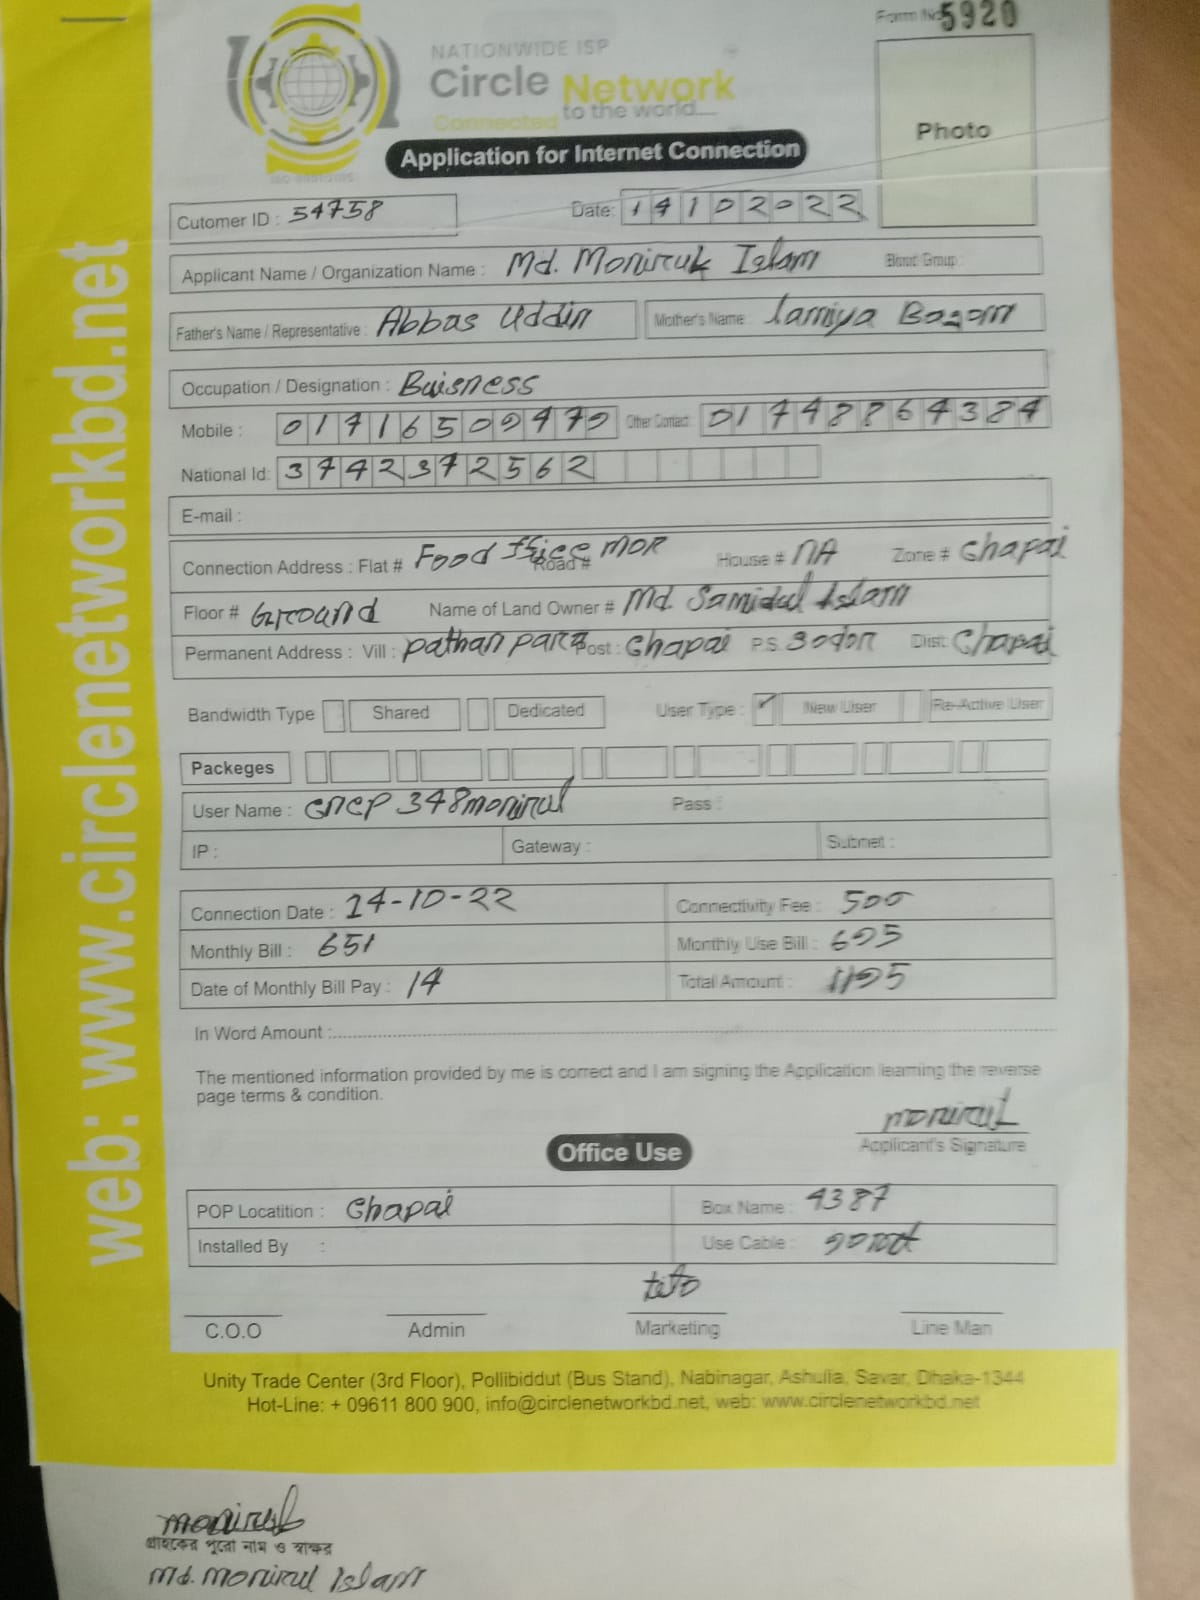 Form No 5920
NATIONWIDE ISP
Circle Network
Connected to the world....
Photo
Application for Internet Connection
Cutomer ID : 54758 Date: 14102022
Applicant Name / Organization Name : Md. Moniruk Islam Blood Group :
Father's Name / Representative : Abbas Uddin Mother's Name : lamiya Bogom
Occupation / Designation : Buisness
Mobile : 01716509470 Other Contact : 01748864384
National Id: 3742372562
E-mail :
Connection Address : Flat # Food ffice MOR Road # House # NA Zone # Chapai
Floor # Ground Name of Land Owner # Md. Samidul Islam
Permanent Address : Vill : Pathan para Post : Chapai P.S. Sodor Dist: Chapai
Bandwidth Type Shared Dedicated User Type : ✓ New User Re-Active User
Packeges
User Name : CNCP 348monirul Pass :
IP : Gateway : Submet :
Connection Date : 14-10-22 Connectivity Fee : 500
Monthly Bill : 651 Monthly Use Bill : 695
Date of Monthly Bill Pay : 14 Total Amount : 1195
In Word Amount :
The mentioned information provided by me is correct and I am signing the Application learning the reverse
page terms & condition.
monirul
Applicant's Signature
Office Use
POP Locatition : Chapai Box Name : 4387
Installed By : Use Cable :
C.O.O Admin Marketing Line Man
Unity Trade Center (3rd Floor), Pollibiddut (Bus Stand), Nabinagar, Ashulia, Savar, Dhaka-1344
Hot-Line: + 09611 800 900, info@circlenetworkbd.net, web: www.circlenetworkbd.net
web: www.circlenetworkbd.net
monirul
গ্রাহকের পুরো নাম ও স্বাক্ষর
Md. Monirul Islam